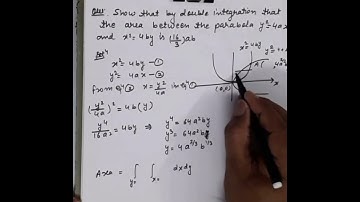 Que: Show that by double integration that
the area between the parabola y² = 4ax
and x² = 4by is (16/3)ab
Solⁿ
x² = 4by — ①
y² = 4ax — ②
from eqⁿ ② x = y²/4a in eqⁿ ①
(y²/4a)² = 4b(y)
y⁴/16a² = 4by ⇒ y⁴ = 64a²by
y³ = 64a²b
y = 4a^2/3 b^1/3
Area = ∫y= ∫x= dxdy
x² = 4by
A(
(0,0)
x